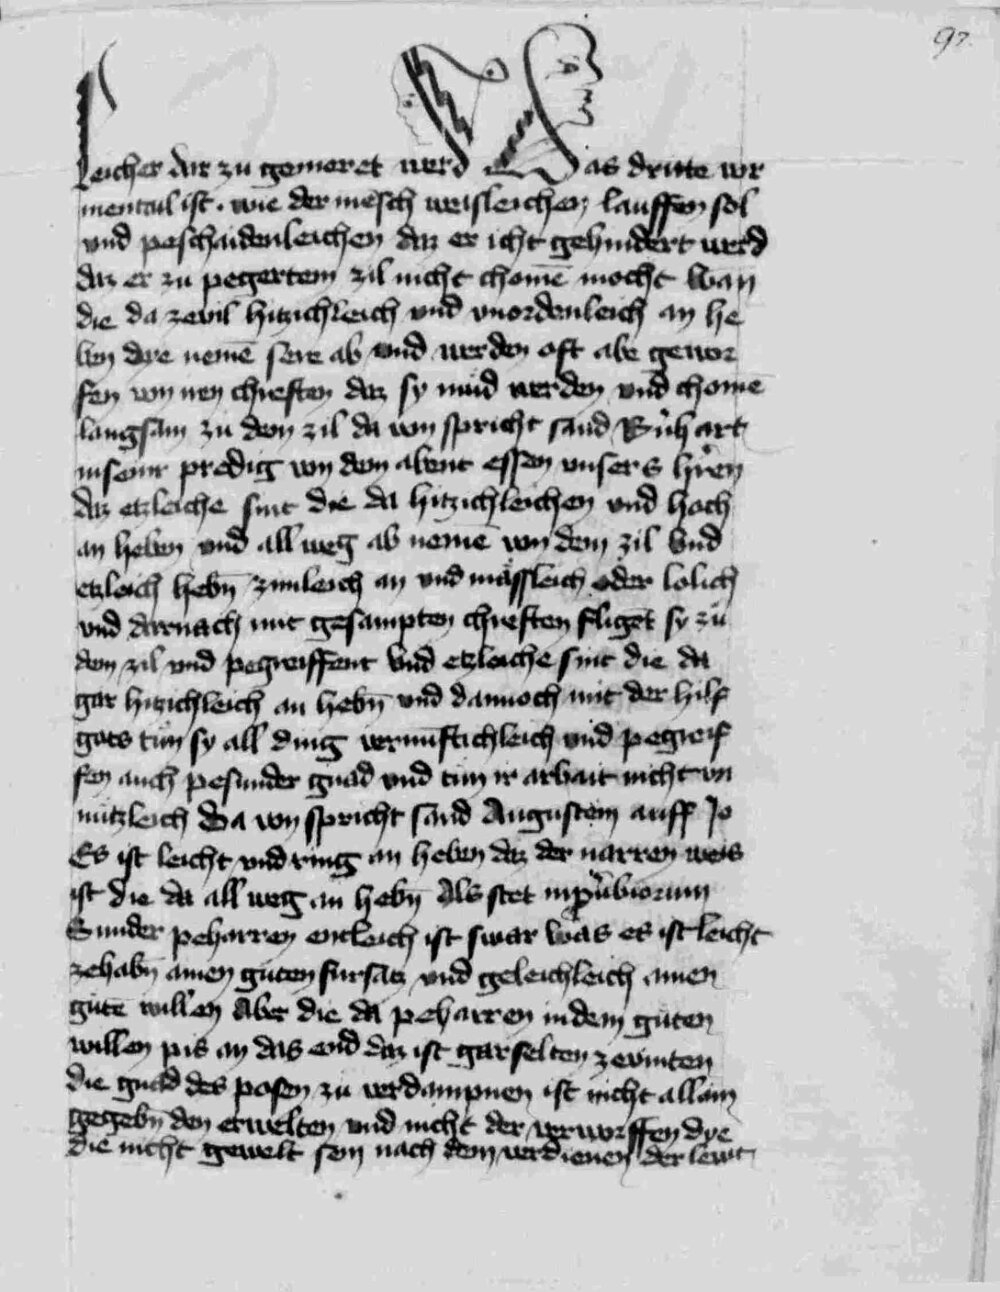 97.
leicher dar zu gemeret werd Das dritte vor
mercul ist. wie der mēsch weisleichen lauffen sol
vnd peschaidenleichen daz er icht gehindert werd
daz er zu pegertem zil nicht chomē mocht Wan
die da zevil hitzichleich vnd vnordenleich an he
ben dye nemē sere ab vnd werden oft abe gewor
fen von iren chreften daz sy müd werden vnd chomē
langsam zu dem zil da von spricht sand
in seinr predig von dem abent essen vnsers hr̄en
daz etzleiche sint die da hitzichleichen vnd hoch
an heben vnd allweg ab nemē von dem zil Vnd
etzleich hebn̄ zimleich an vnd mässleich oder lobich
vnd darnach mit gesampten chreften fliget sy zu
dem zil vnd pegreiffent Vnd etzleiche sint die da
gar hitzichleich an hebn̄ vnd dannoch mit der hilf
gots tun sy all ding vernüftichleich vnd pegreif
fen auch pesunder gnad vnd tun ir arbait nicht vn
nützleich Da von spricht sand Augustein auff Jo
Es ist leicht vnd ring an heben daz der narren weis
ist die da allweg an hebn̄ Als stet in
Sunder peharren entleich ist swar Was es ist leicht
zehabn̄ ainen guten fursatz vnd geleichleich ainen
gutē willen Aber die da peharren in dem guten
willen pis an das end daz ist gar selten ze vinten
die gnad des posen zu verdampnen ist nicht allain
gegebn̄ den erwelten vnd nicht der verworffen dye
die nicht gewelt sein nach dem verdienen der lewt